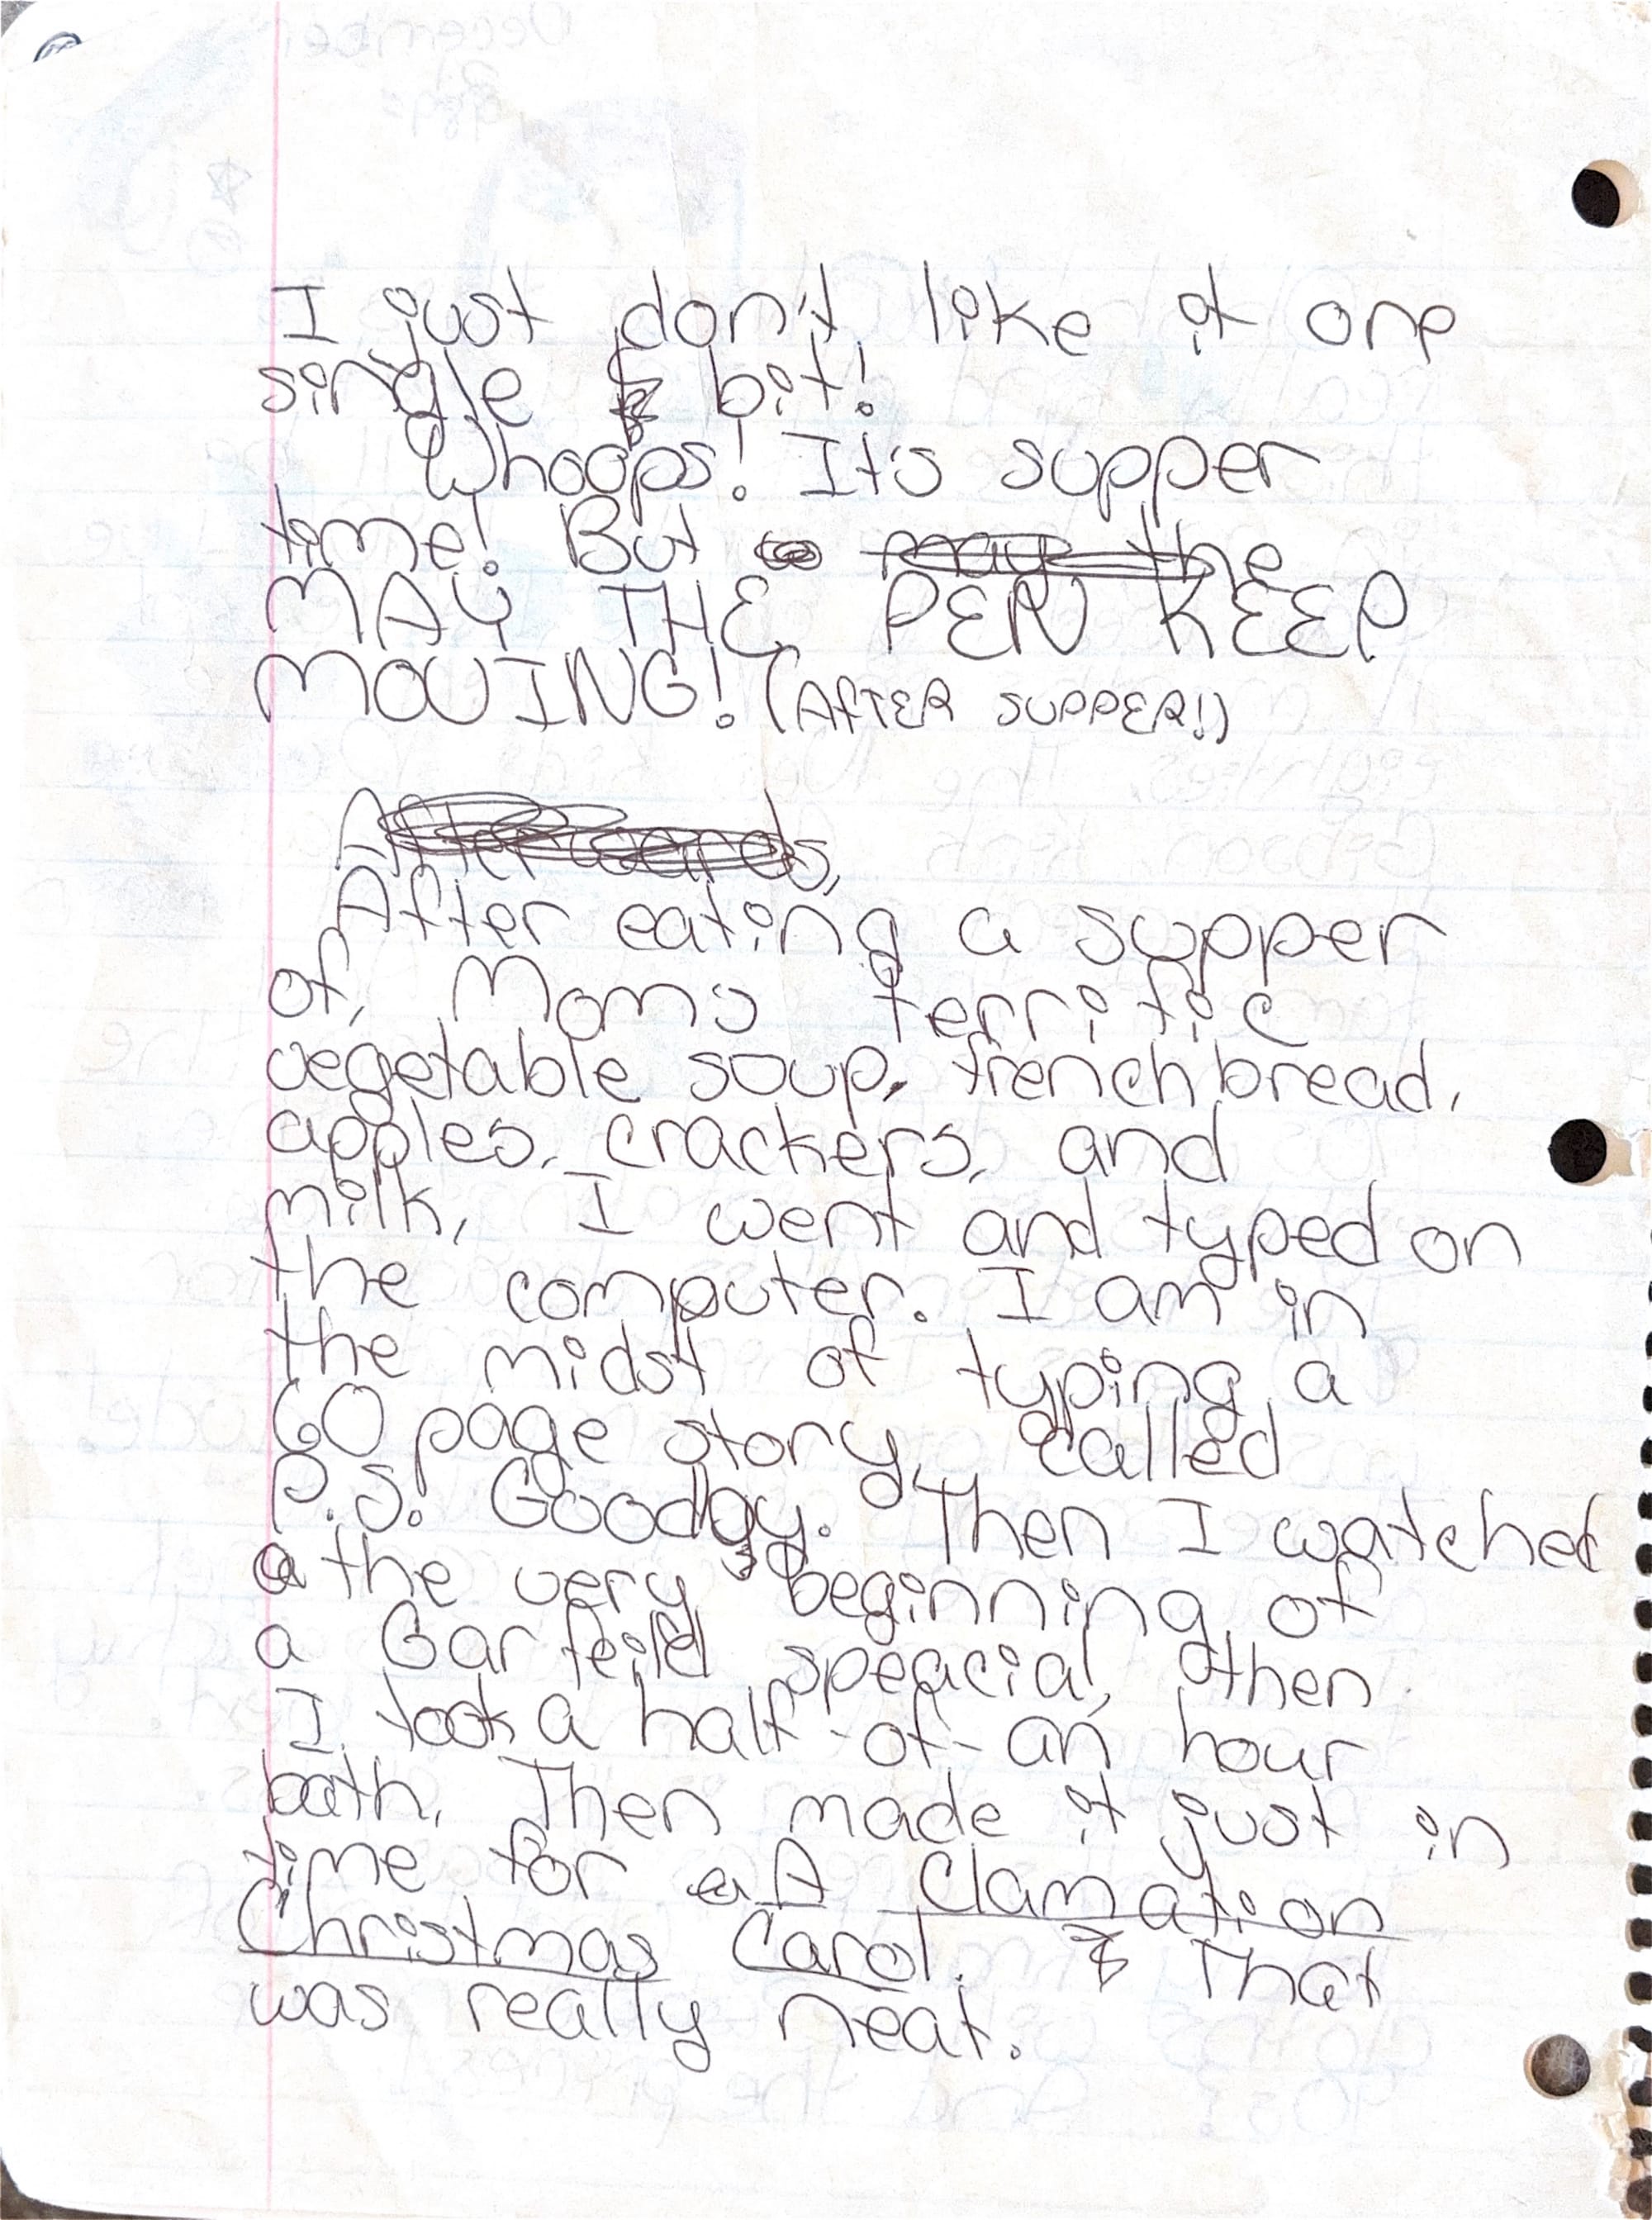 I just don't like it one
single bit!
Whoops! It's supper
time! But may the
MAY THE PEN KEEP
MOVING! (AFTER SUPPER!)
Afterwards,
After eating a supper
of, Moms terrific
vegetable soup, french bread,
apples, crackers, and
milk, I went and typed on
the computer. I am in
the midst of typing a
60 page story, called
P.S. Goodgy. Then I watched
a the very beginning of
a Garfeild speacial, then
I took a half-of-an hour
bath. Then made it just in
time for a A Clamation
Christmas Carol. That
was really neat.